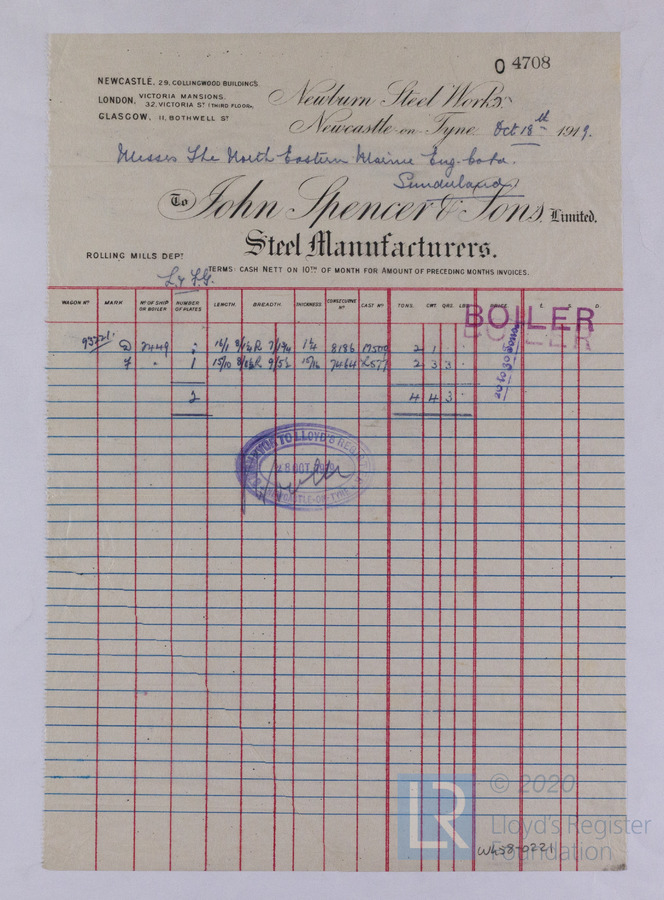 O 4708
NEWCASTLE, 29, COLLINGWOOD BUILDINGS.
LONDON, VICTORIA MANSIONS, 32, VICTORIA ST (THIRD FLOOR),
GLASGOW, 11, BOTHWELL ST
Newburn Steel Works,
Newcastle-on-Tyne, Oct 18th 1919.
Messrs The North Eastern Marine Eng. Co Ltd.
Sunderland
To John Spencer & Sons, Limited.
Steel Manufacturers.
ROLLING MILLS DEPT
TERMS: CASH NETT ON 10TH OF MONTH FOR AMOUNT OF PRECEDING MONTHS INVOICES.
WAGON NO MARK NO OF SHIP OR BOILER NUMBER OF PLATES LENGTH. BREADTH. THICKNESS. CONSECUTIVE NO CAST NO TONS. CWT. QRS. LBS PRICE £ S D
BOILER
BOILER
93221 2449 1 7/1¾ 1¼ 8186 2 1
7 " 1 15/10 9/5½ 15/16 7464 2 3 3
2 4 4 3
SURVEYOR TO LLOYD'S REGISTER
OCT
NEWCASTLE-ON-TYNE
© 2020
LR Lloyd's Register
Foundation
W458-0221